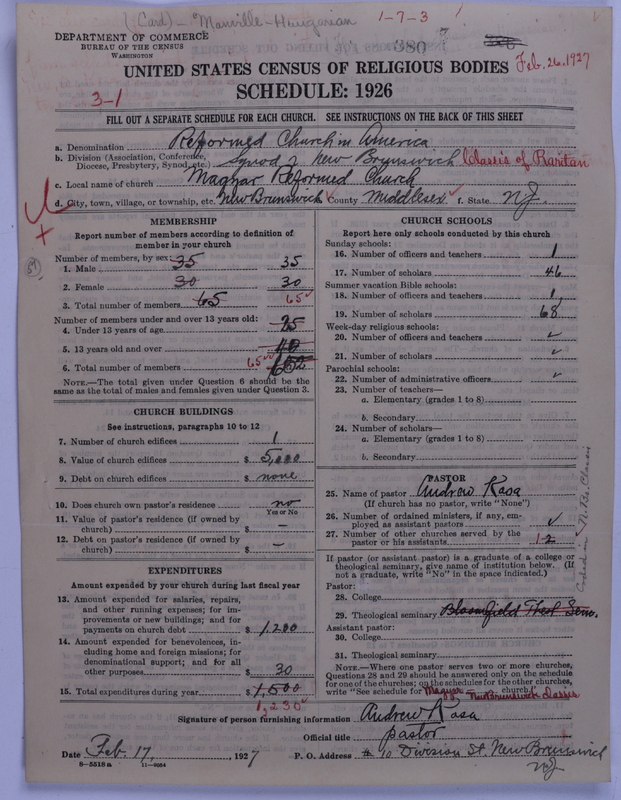 (Card) - Manville - Hungarian
1-7-3
DEPARTMENT OF COMMERCE
BUREAU OF THE CENSUS
WASHINGTON
380
Feb. 26. 1927
UNITED STATES CENSUS OF RELIGIOUS BODIES
3-1
SCHEDULE: 1926
FILL OUT A SEPARATE SCHEDULE FOR EACH CHURCH. SEE INSTRUCTIONS ON THE BACK OF THIS SHEET
a. Denomination Reformed Church in America
b. Division (Association, Conference, Diocese, Presbytery, Synod, etc.) Synod of New Brunswick Classis of Raritan
c. Local name of church Magyar Reformed Church
d. City, town, village, or township, etc. New Brunswick County Middlesex f. State N.J.
MEMBERSHIP
Report number of members according to definition of
member in your church
Number of members, by sex:
1. Male 35 35
2. Female 30 30
3. Total number of members 65 65
Number of members under and over 13 years old:
4. Under 13 years of age 25
5. 13 years old and over 40
6. Total number of members 65
NOTE.—The total given under Question 6 should be the
same as the total of males and females given under Question 3.
CHURCH BUILDINGS
See instructions, paragraphs 10 to 12
7. Number of church edifices 1
8. Value of church edifices $ 5,000
9. Debt on church edifices $ none
10. Does church own pastor's residence no
Yes or No
11. Value of pastor's residence (if owned by
church) $ —
12. Debt on pastor's residence (if owned by
church) $ —
EXPENDITURES
Amount expended by your church during last fiscal year
13. Amount expended for salaries, repairs,
and other running expenses; for im-
provements or new buildings; and for
payments on church debt $ 1,200
14. Amount expended for benevolences, in-
cluding home and foreign missions; for
denominational support; and for all
other purposes $ 30
15. Total expenditures during year $ 1,500
1,230
CHURCH SCHOOLS
Report here only schools conducted by this church
Sunday schools:
16. Number of officers and teachers 1
17. Number of scholars 46
Summer vacation Bible schools:
18. Number of officers and teachers 1
19. Number of scholars 68
Week-day religious schools:
20. Number of officers and teachers ✓
21. Number of scholars ✓
Parochial schools:
22. Number of administrative officers ✓
23. Number of teachers—
a. Elementary (grades 1 to 8)
b. Secondary
24. Number of scholars—
a. Elementary (grades 1 to 8)
b. Secondary
PASTOR
25. Name of pastor Andrew Kasa
(If church has no pastor, write "None")
26. Number of ordained ministers, if any, em-
ployed as assistant pastors ✓
27. Number of other churches served by the
pastor or his assistants 1-2
If pastor (or assistant pastor) is a graduate of a college or
theological seminary, give name of institution below. (If
not a graduate, write "No" in the space indicated.)
Pastor:
28. College
29. Theological seminary Bloomfield Theol. Sem.
Assistant pastor:
30. College
31. Theological seminary
NOTE.—Where one pastor serves two or more churches,
Questions 28 and 29 should be answered only on the schedule
for one of the churches; on the schedules for the other churches,
write "See schedule for Magyar New Brunswick Classis church."
Signature of person furnishing information Andrew Kasa
Official title pastor
Date Feb. 17, 1927 P. O. Address 10 Division St. New Brunswick
N.J.
8-5518a 11-9064